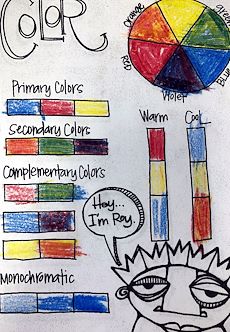 Color
Orange
Green
Red
Blue
Violet
Primary Colors
Secondary Colors
Warm
Cool
Complementary Colors
Hey...
I'm Roy.
Monochromatic